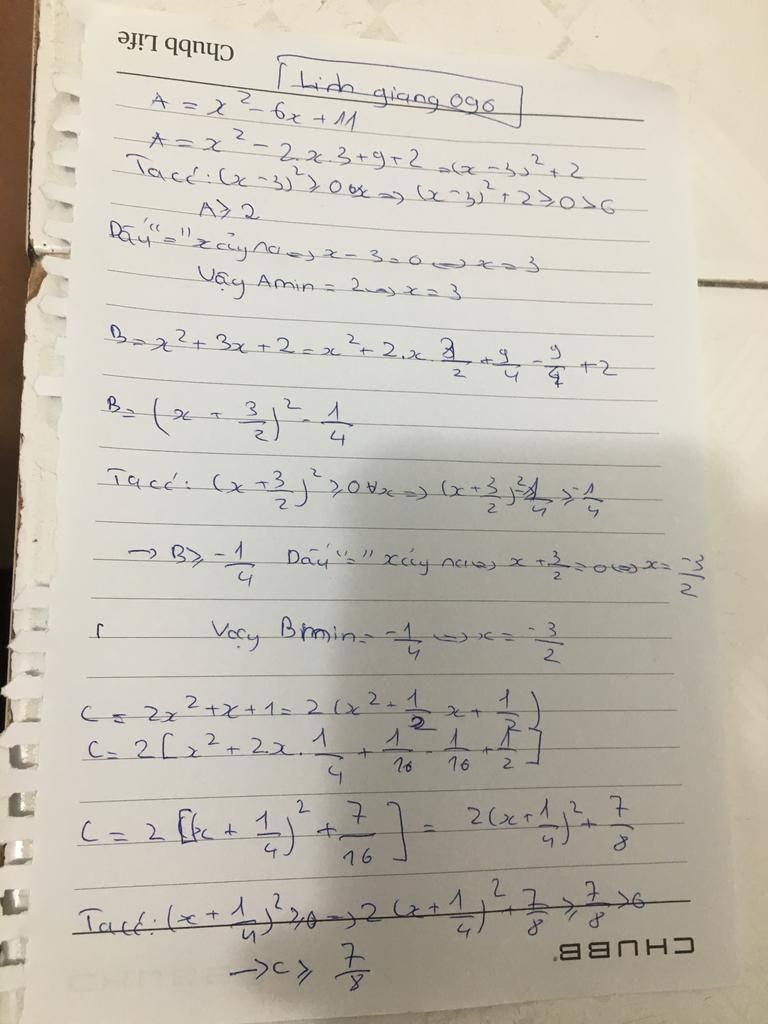 Chubb Life
Linh giang 096
A = x² - 6x + 11
A = x² - 2.x.3 + 9 + 2 = (x - 3)² + 2
Ta có: (x - 3)² ≥ 0 ∀x => (x - 3)² + 2 ≥ 0 > 6
A ≥ 2
Dấu "=" xảy ra <=> x - 3 = 0 <=> x = 3
Vậy Amin = 2 <=> x = 3
B = x² + 3x + 2 = x² + 2.x 3/2 + 9/4 - 9/4 + 2
B = (x + 3/2)² - 1/4
Ta có: (x + 3/2)² ≥ 0 ∀x => (x + 3/2)² - 1/4 ≥ -1/4
-> B ≥ -1/4 Dấu "=" xảy ra <=> x + 3/2 = 0 <=> x = -3/2
Vậy Bmin = -1/4 <=> x = -3/2
C = 2x² + x + 1 = 2(x² + 1/2 x + 1/2)
C = 2[x² + 2x.1/4 + 1/16 - 1/16 + 1/2]
C = 2[(x + 1/4)² + 7/16] = 2(x + 1/4)² + 7/8
Ta có: (x + 1/4)² ≥ 0 => 2(x + 1/4)² + 7/8 ≥ 7/8 > 6
-> C ≥ 7/8
CHUBB®